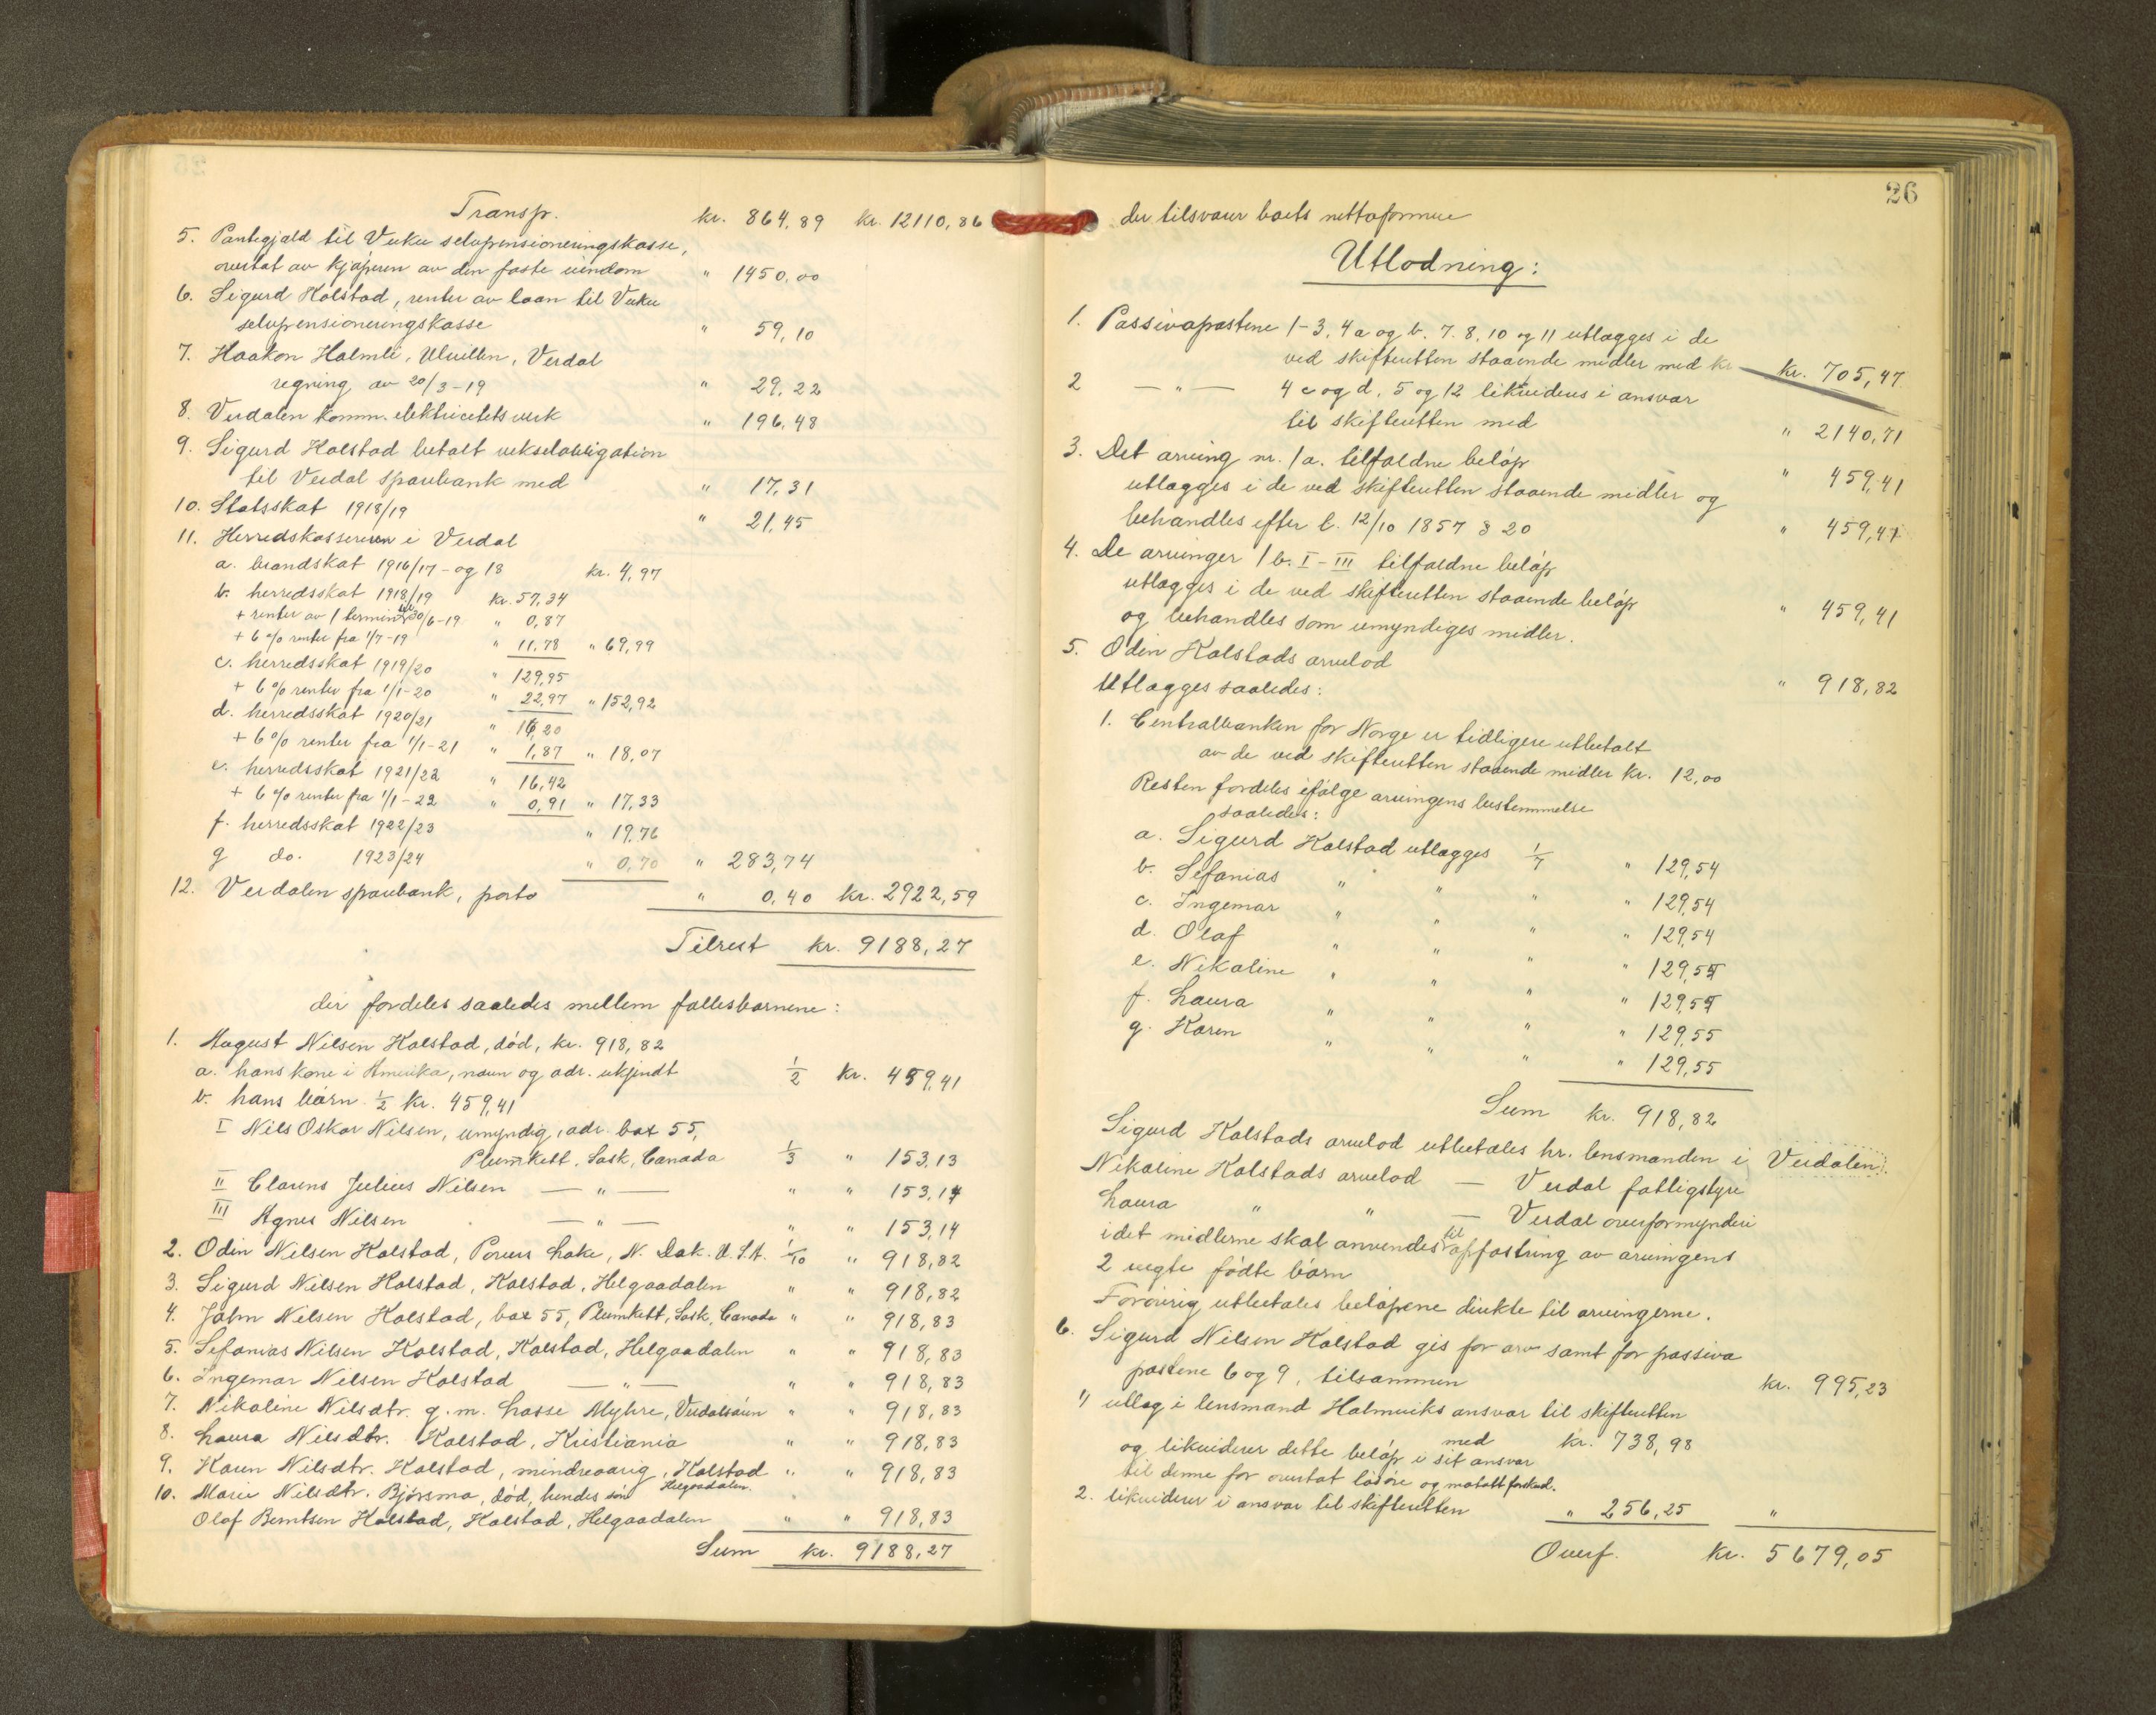 Transp. kr. 864,89 kr. 12110,86
5. Pantegjæld til Vuku selvpensioneringskasse,
overtat av kjøperen av den faste eiendom " 1450,00
6. Sigurd Kolstad, renter av laan til Vuku
selvpensioneringskasse " 59,10
7. Haakon Halmli, Ulvillen, Verdal
regning av 20/3-19 " 29,22
8. Verdalen komm. elektricitetsverk " 196,48
9. Sigurd Kolstad betalt vekselobligation
til Verdal sparebank med " 17,31
10. Statsskat 1918/19 " 21,45
11. Herredskassereren i Verdal
a. brandskat 1916/17 - og 18 kr. 4,97
b. herredsskat 1918/19 kr. 57,34
+ renter av 1 termin til 30/6-19 " 0,87
+ 6% renter fra 1/7-19 " 11,78 " 69,99
c. herredsskat 1919/20 " 129,95
+ 6% renter fra 1/1-20 " 22,97 " 152,92
d. herredsskat 1920/21 " 16,20
+ 6% renter fra 1/1-21 " 1,87 " 18,07
e. herredsskat 1921/22 " 16,42
+ 6% renter fra 1/1-22 " 0,91 " 17,33
f. herredsskat 1922/23 " 19,76
g do. 1923/24 " 0,70 " 283,74
12. Verdalen sparebank, porto " 0,40 kr. 2922,59
Tilrest kr. 9188,27
der fordeles saaledes mellem fællesbarnene:
1. August Nilsen Kolstad, død, kr. 918,82
a. hans kone i Amerika, navn og adr. ukjendt 1/2 kr. 459,41
b. hans børn 1/2 kr. 459,41
I Nils Oskar Nilsen, umyndig, adr. box 55,
Plumkett, Sask, Canada 1/3 " 153,13
II Clarens Julius Nilsen — " — " " 153,14
III Agnes Nilsen — " — " " 153,14
2. Odin Nilsen Kolstad, Powers Lake, N. Dak. U.S.A. 1/10 " 918,82
3. Sigurd Nilsen Kolstad, Kolstad, Helgaadalen " " 918,82
4. John Nilsen Kolstad, box 55, Plumkett, Sask, Canada " " 918,83
5. Sefanias Nilsen Kolstad, Kolstad, Helgaadalen " " 918,83
6. Ingemar Nilsen Kolstad — " — " " 918,83
7. Nikoline Nilsdtr. g.m. Lasse Myhre, Verdalsøren " " 918,83
8. Laura Nilsdtr. Kolstad, Kristiania " " 918,83
9. Karen Nilsdtr. Kolstad, mindreaarig, Kolstad " " 918,83
Helgaadalen.
10. Marie Nilsdtr. Bjørsmo, død, hendes søn
Olaf Berntsen Kolstad, Kolstad, Helgaadalen " " 918,83
Sum kr. 9188,27
26
der tilsvarer boets nettoformue
Utlodning:
1. Passivapostene 1-3, 4a og b. 7. 8, 10 og 11 utlægges i de
ved skifteretten staaende midler med kr kr. 705,47
2 — " — 4 c og d, 5 og 12 likvideres i ansvar
til skifteretten med " 2140,71
3. Det arving nr. 1a. tilfaldne beløp " 459,41
utlægges i de ved skifteretten staaende midler og
behandles efter l. 12/10 1857 § 20 " 459,41
4. De arvinger 1b. I-III tilfaldne beløp
utlægges i de ved skifteretten staaende beløp
og behandles som umyndiges midler. " 459,41
5. Odin Kolstads arvelod
utlægges saaledes: " 918,82
1. Centralbanken for Norge er tidligere utbetalt
av de ved skifteretten staaende midler kr. 12,00
Resten fordeles ifølge arvingens bestemmelse
saaledes:
a. Sigurd Kolstad utlægges 1/7 " 129,54
b. Sefanias " " " " 129,54
c. Ingemar " " " " 129,54
d. Olaf " " " " 129,55
e. Nikoline " " " " 129,55
f. Laura " " " " 129,55
g. Karen " " " " 129,55
Sum kr. 918,82
Sigurd Kolstads arvelod utbetales hr. lensmanden i Verdalen.
Nikoline Kolstads arvelod — Verdal fattigstyre
Laura " " — Verdal overformynderi
idet midlerne skal anvendes til opfostring av arvingens
2 uegte fødte børn
Forøvrig utbetales beløpene direkte til arvingerne.
6. Sigurd Nilsen Kolstad gis for arv samt for passiva
postene 6 og 9, tilsammen kr. 995,23
1) utlæg i lensmand Holmviks ansvar til skifteretten
med kr. 738,98
og likviderer dette beløp i sit ansvar
til denne for overtat løsøre og motatt forskud.
2. likviderer i ansvar til skifteretten " 256,25 "
Overf. kr. 5679,05